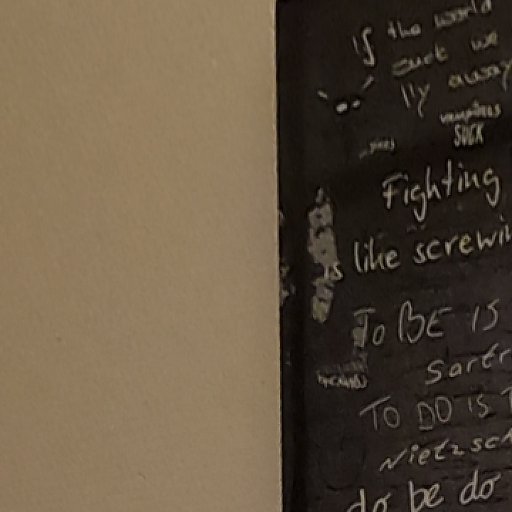 If the world
suck we
fly away
vampires
SUCK
Fighting
is like screwin
To BE IS
Sartr
TO DO IS T
Nietzsch
do be do